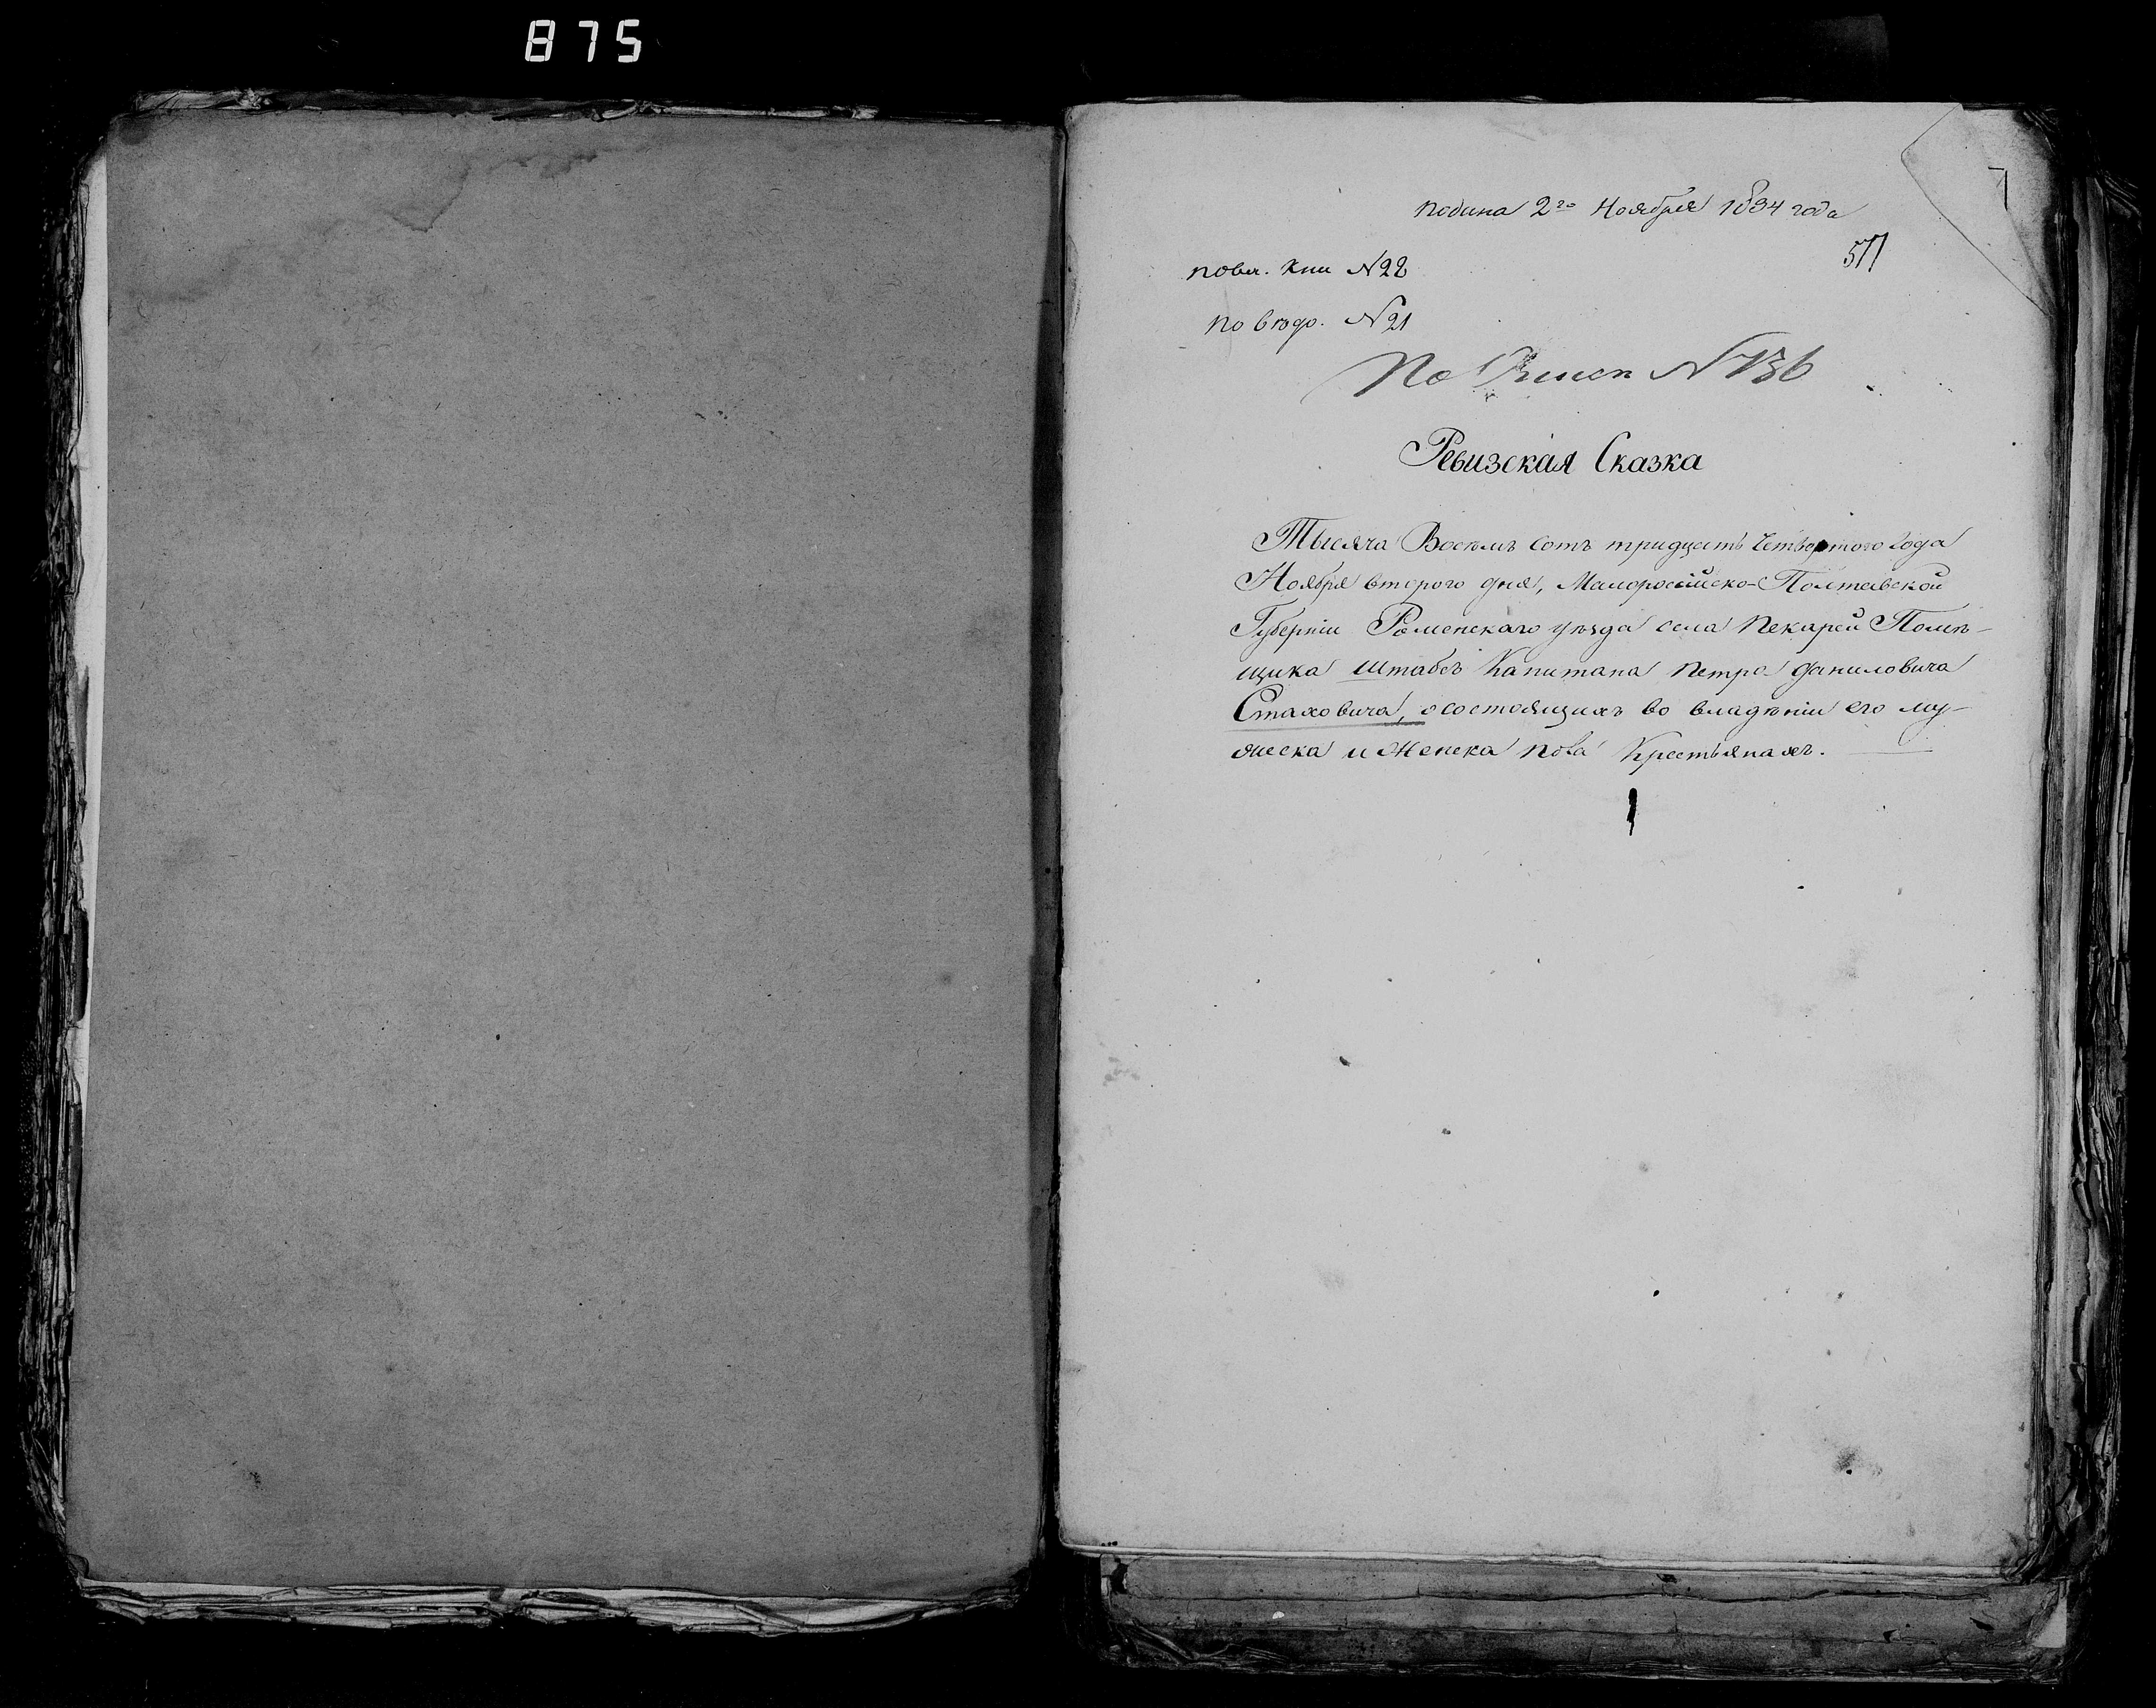 875
7
подана 2го Ноября 1834 года
577
по вх. Кни №22
по вѣдо. №21
По №136
Ревизская Сказка
Тысяча Восемь Сотъ тридцать Четвертого Года
Ноября второго дня, Малоросійско-Полтавской
Губерніи Роменскаго уѣзда села Пекарей Помѣ-
щика Штабсъ Капитана Петра Даниловича
Стаховича, о состоящихъ во владѣніи его му-
жеска и Женска пола Крестьянахъ.